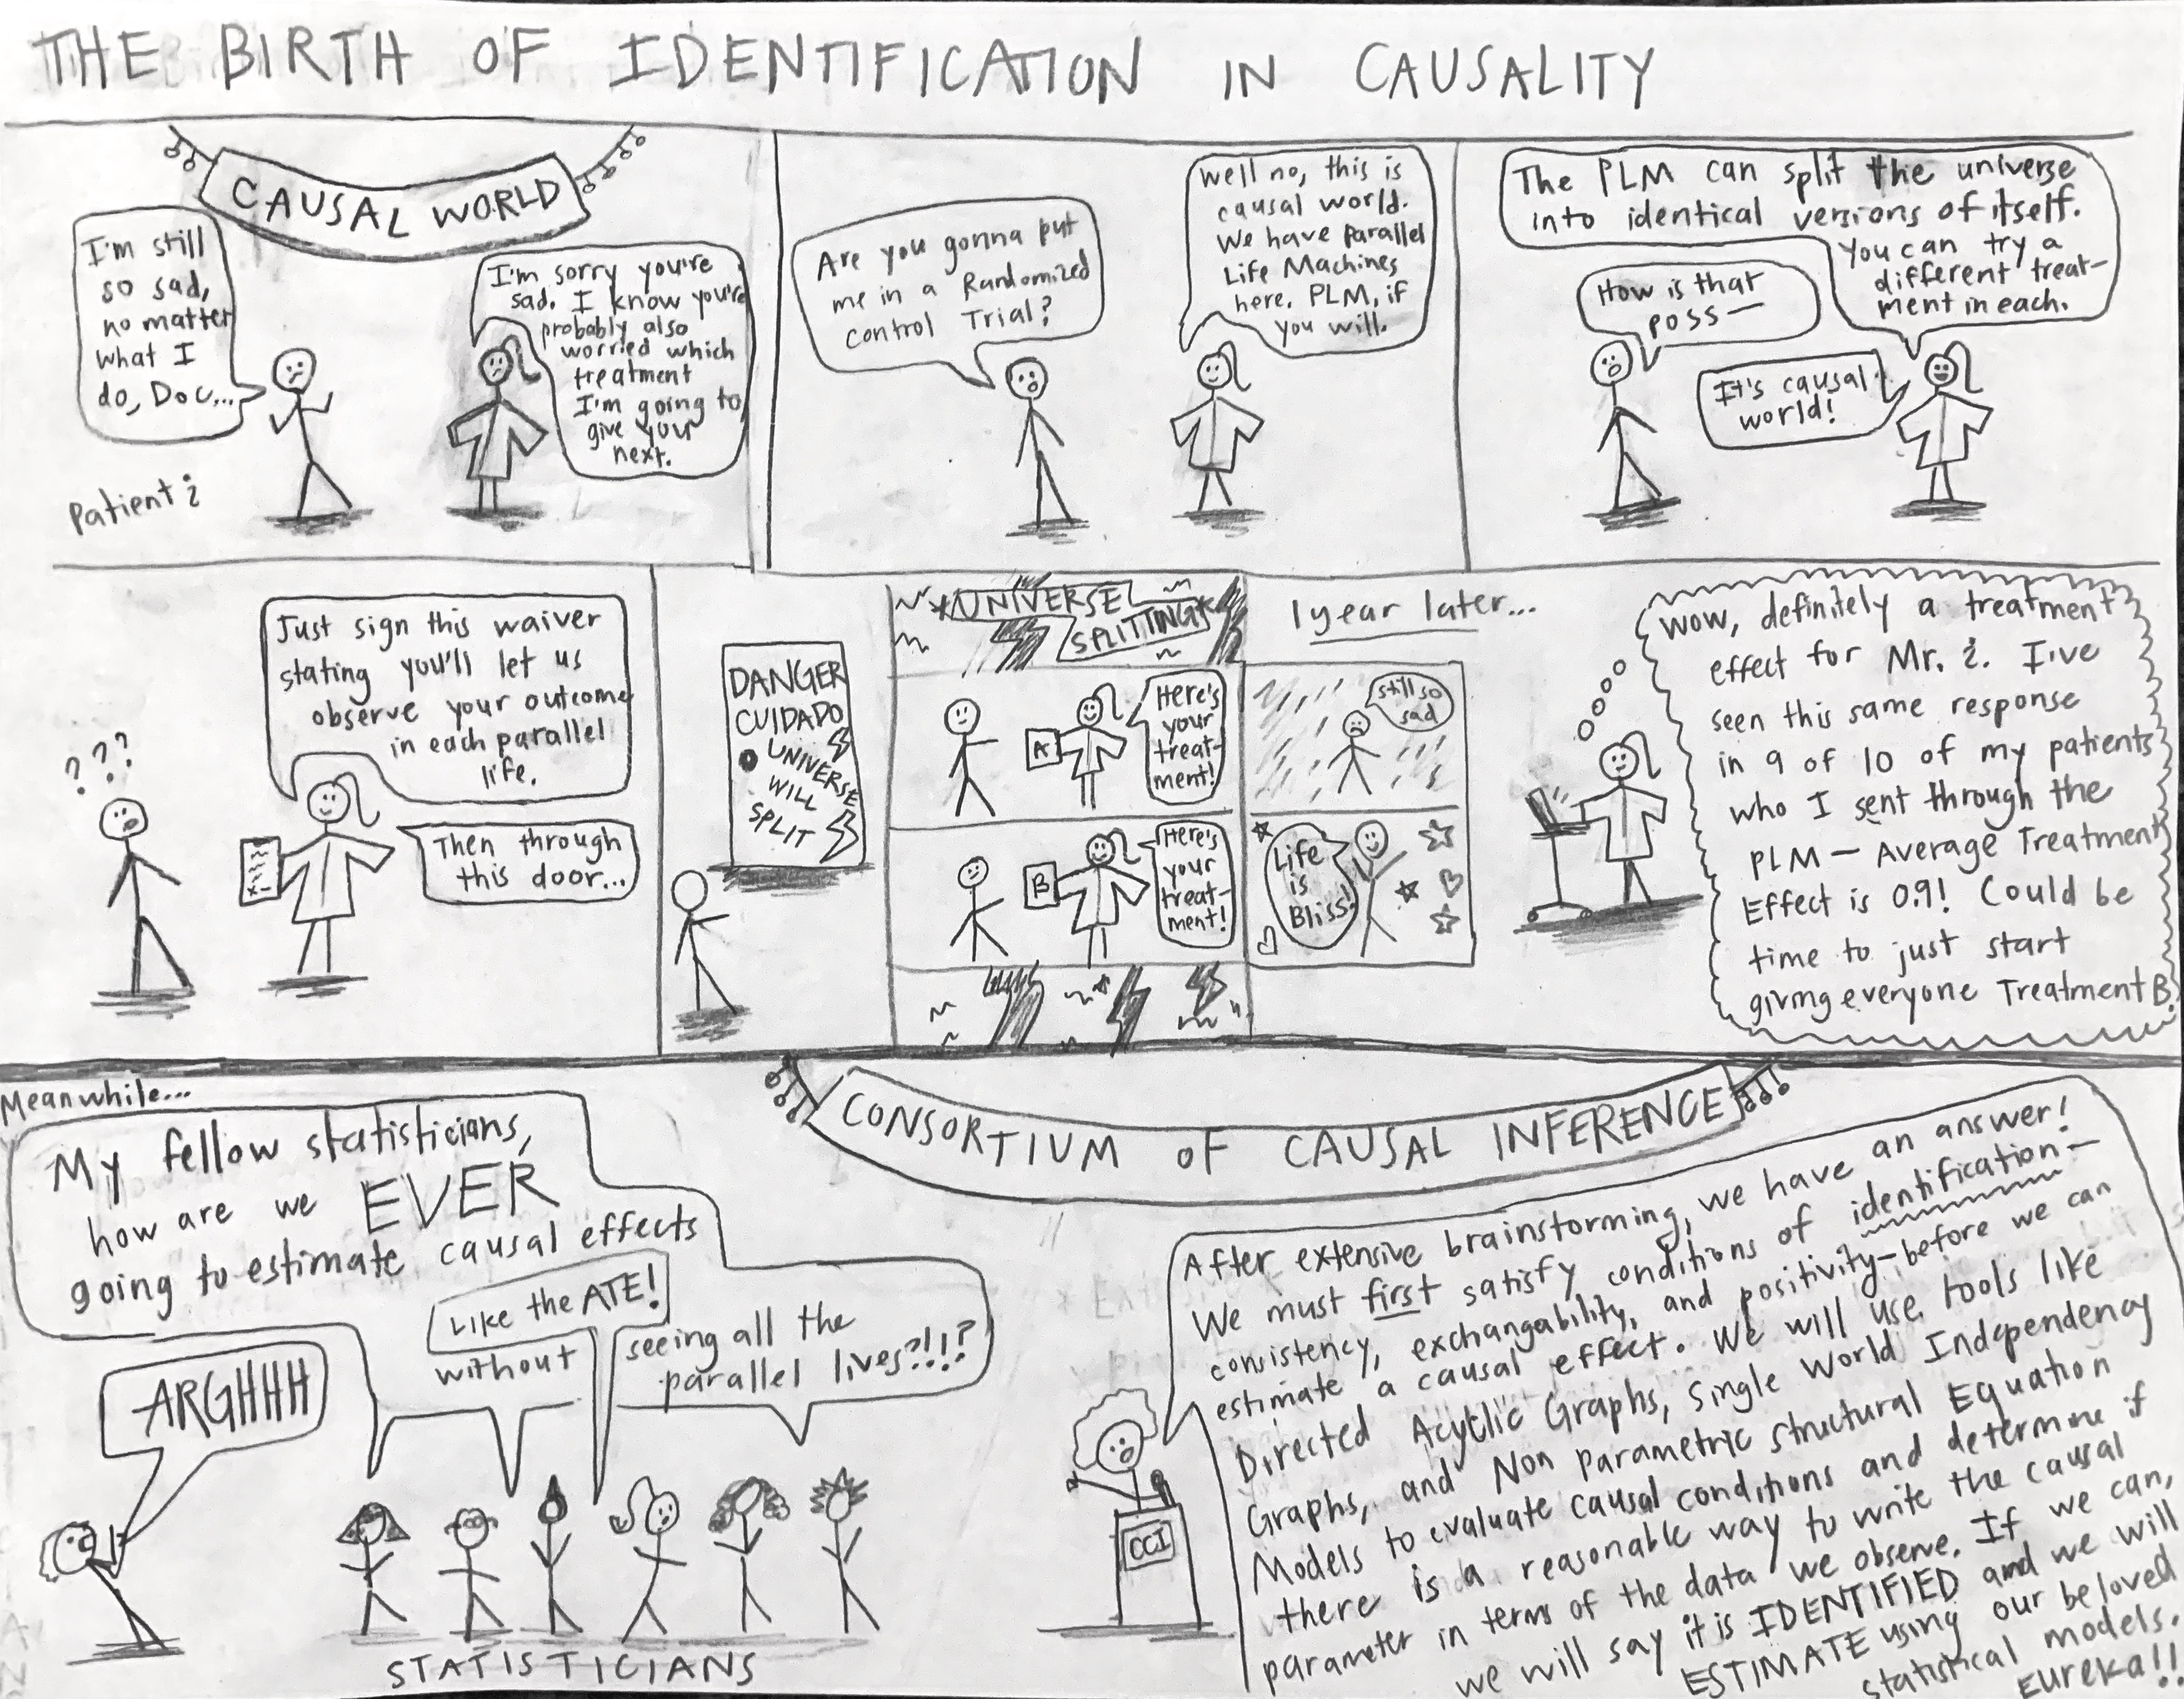 THE BIRTH OF IDENTIFICATION IN CAUSALITY
CAUSAL WORLD
I'm still
so sad,
no matter
what I
do, Doc...
Patient i
I'm sorry you're
sad. I know you're
probably also
worried which
treatment
I'm going to
give you
next.
Are you gonna put
me in a Randomized
control Trial?
well no, this is
causal world.
We have Parallel
Life Machines
here. PLM, if
you will.
The PLM can split the universe
into identical versions of itself.
You can try a
different treat-
ment in each.
How is that
poss—
It's causal
world!
Just sign this waiver
stating you'll let us
observe your outcome
in each parallel
life.
???
Then through
this door...
DANGER
CUIDADO
UNIVERSE
WILL
SPLIT
*UNIVERSE
SPLITTING*
A
Here's
your
treat-
ment!
B
Here's
your
treat-
ment!
1 year later...
still so
sad
Life
is
Bliss!
Wow, definitely a treatment
effect for Mr. i. I've
seen this same response
in 9 of 10 of my patients
who I sent through the
PLM — Average Treatment
Effect is 0.9! Could be
time to just start
giving everyone Treatment B.
Meanwhile...
CONSORTIUM OF CAUSAL INFERENCE
My fellow statisticians,
how are we EVER
going to estimate causal effects
Like the ATE!
without
seeing all the
parallel lives?!!?
ARGHHH
STATISTICIANS
CCI
After extensive brainstorming, we have an answer!
We must first satisfy conditions of identification—
consistency, exchangability, and positivity—before we can
estimate a causal effect. We will use tools like
Directed Acyclic Graphs, Single World Independency
Graphs, and Non Parametric Structural Equation
Models to evaluate causal conditions and determine if
there is a reasonable way to write the causal
parameter in terms of the data we observe. If we can,
we will say it is IDENTIFIED and we will
ESTIMATE using our beloved
statistical models.
Eureka!!